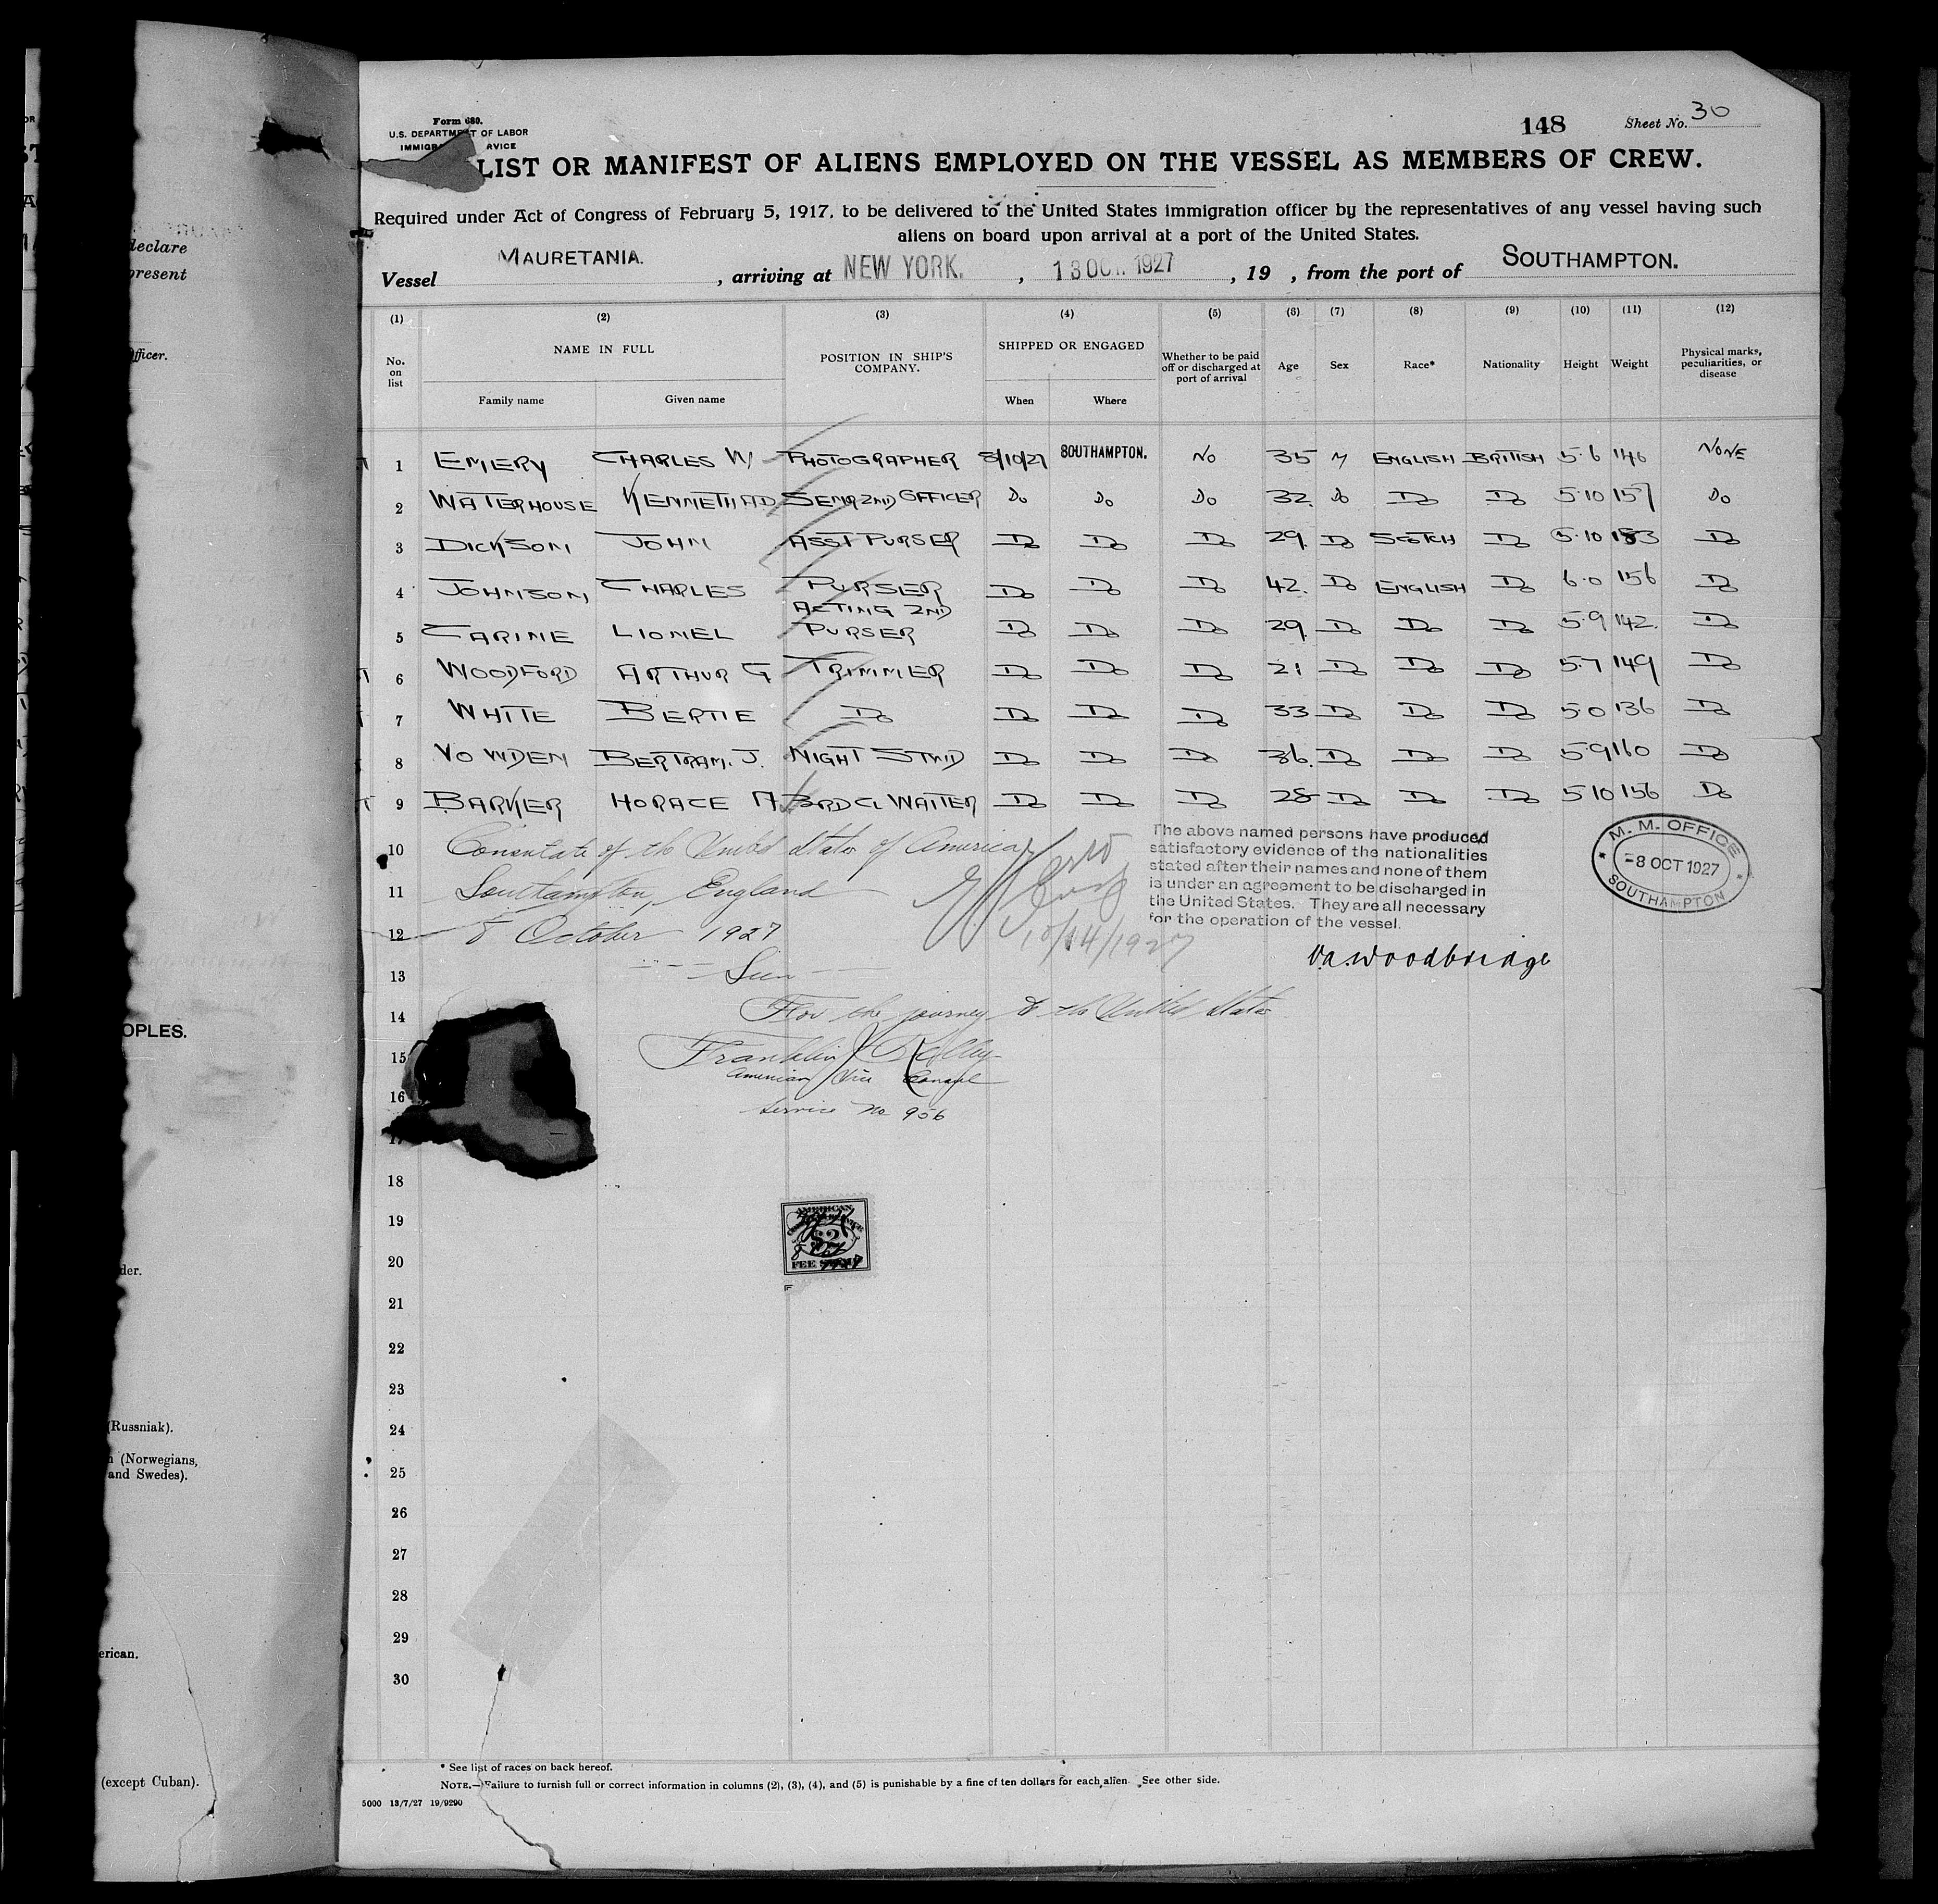 Form 680.
U.S. DEPARTMENT OF LABOR
148
Sheet No. 30
LIST OR MANIFEST OF ALIENS EMPLOYED ON THE VESSEL AS MEMBERS OF CREW.
Required under Act of Congress of February 5, 1917, to be delivered to the United States immigration officer by the representatives of any vessel having such
aliens on board upon arrival at a port of the United States.
Vessel MAURETANIA. , arriving at NEW YORK. , 13 OCT. 1927 , 19 , from the port of SOUTHAMPTON.
(1) (2) (3) (4) (5) (6) (7) (8) (9) (10) (11) (12)
No. on list
NAME IN FULL
Family name Given name
POSITION IN SHIP'S COMPANY.
SHIPPED OR ENGAGED
When Where
Whether to be paid off or discharged at port of arrival
Age Sex Race* Nationality Height Weight
Physical marks, peculiarities, or disease
1 EMERY CHARLES W PHOTOGRAPHER 8/10/27 SOUTHAMPTON. NO 35 M ENGLISH BRITISH 5·6 146 NONE
2 WATERHOUSE KENNETH AD SENR 2ND OFFICER Do Do Do 32. Do Do Do 5·10 157 Do
3 DICKSON JOHN ASST PURSER Do Do Do 29. Do SCOTCH Do 5·10 183 Do
4 JOHNSON CHARLES PURSER Do Do Do 42. Do ENGLISH Do 6·0 156 Do
5 CARINE LIONEL ACTING 2ND PURSER Do Do Do 29. Do Do Do 5·9 142. Do
6 WOODFORD ARTHUR G TRIMMER Do Do Do 21 Do Do Do 5·7 149 Do
7 WHITE BERTIE Do Do Do Do 33 Do Do Do 5·0 136 Do
8 VOWDEN BERTRAM. J. NIGHT STWD Do Do Do 36. Do Do Do 5·9 160 Do
9 BARKER HORACE A 3RD CL WAITER Do Do Do 28 Do Do Do 5 10 156 Do
10 Consulate of the United States of America
11 Southampton, England
12 8 October 1927
13 Seen
14 For the journey to the United States
15 Franklin
American Vice Consul
16
Service No 956
10/14/1927
The above named persons have produced
satisfactory evidence of the nationalities
stated after their names and none of them
is under an agreement to be discharged in
the United States. They are all necessary
for the operation of the vessel.
Woodbridge
M. M. OFFICE
-8 OCT 1927
SOUTHAMPTON
17
18
19
20
AMERICAN
$2
FEE STAMP
21
22
23
24
25
26
27
28
29
30
* See list of races on back hereof.
NOTE.—Failure to furnish full or correct information in columns (2), (3), (4), and (5) is punishable by a fine of ten dollars for each alien. See other side.
5000 13/7/27 19/9290
declare
present
Officer.
OPLES.
der.
(Russniak).
(Norwegians,
and Swedes).
erican.
(except Cuban).